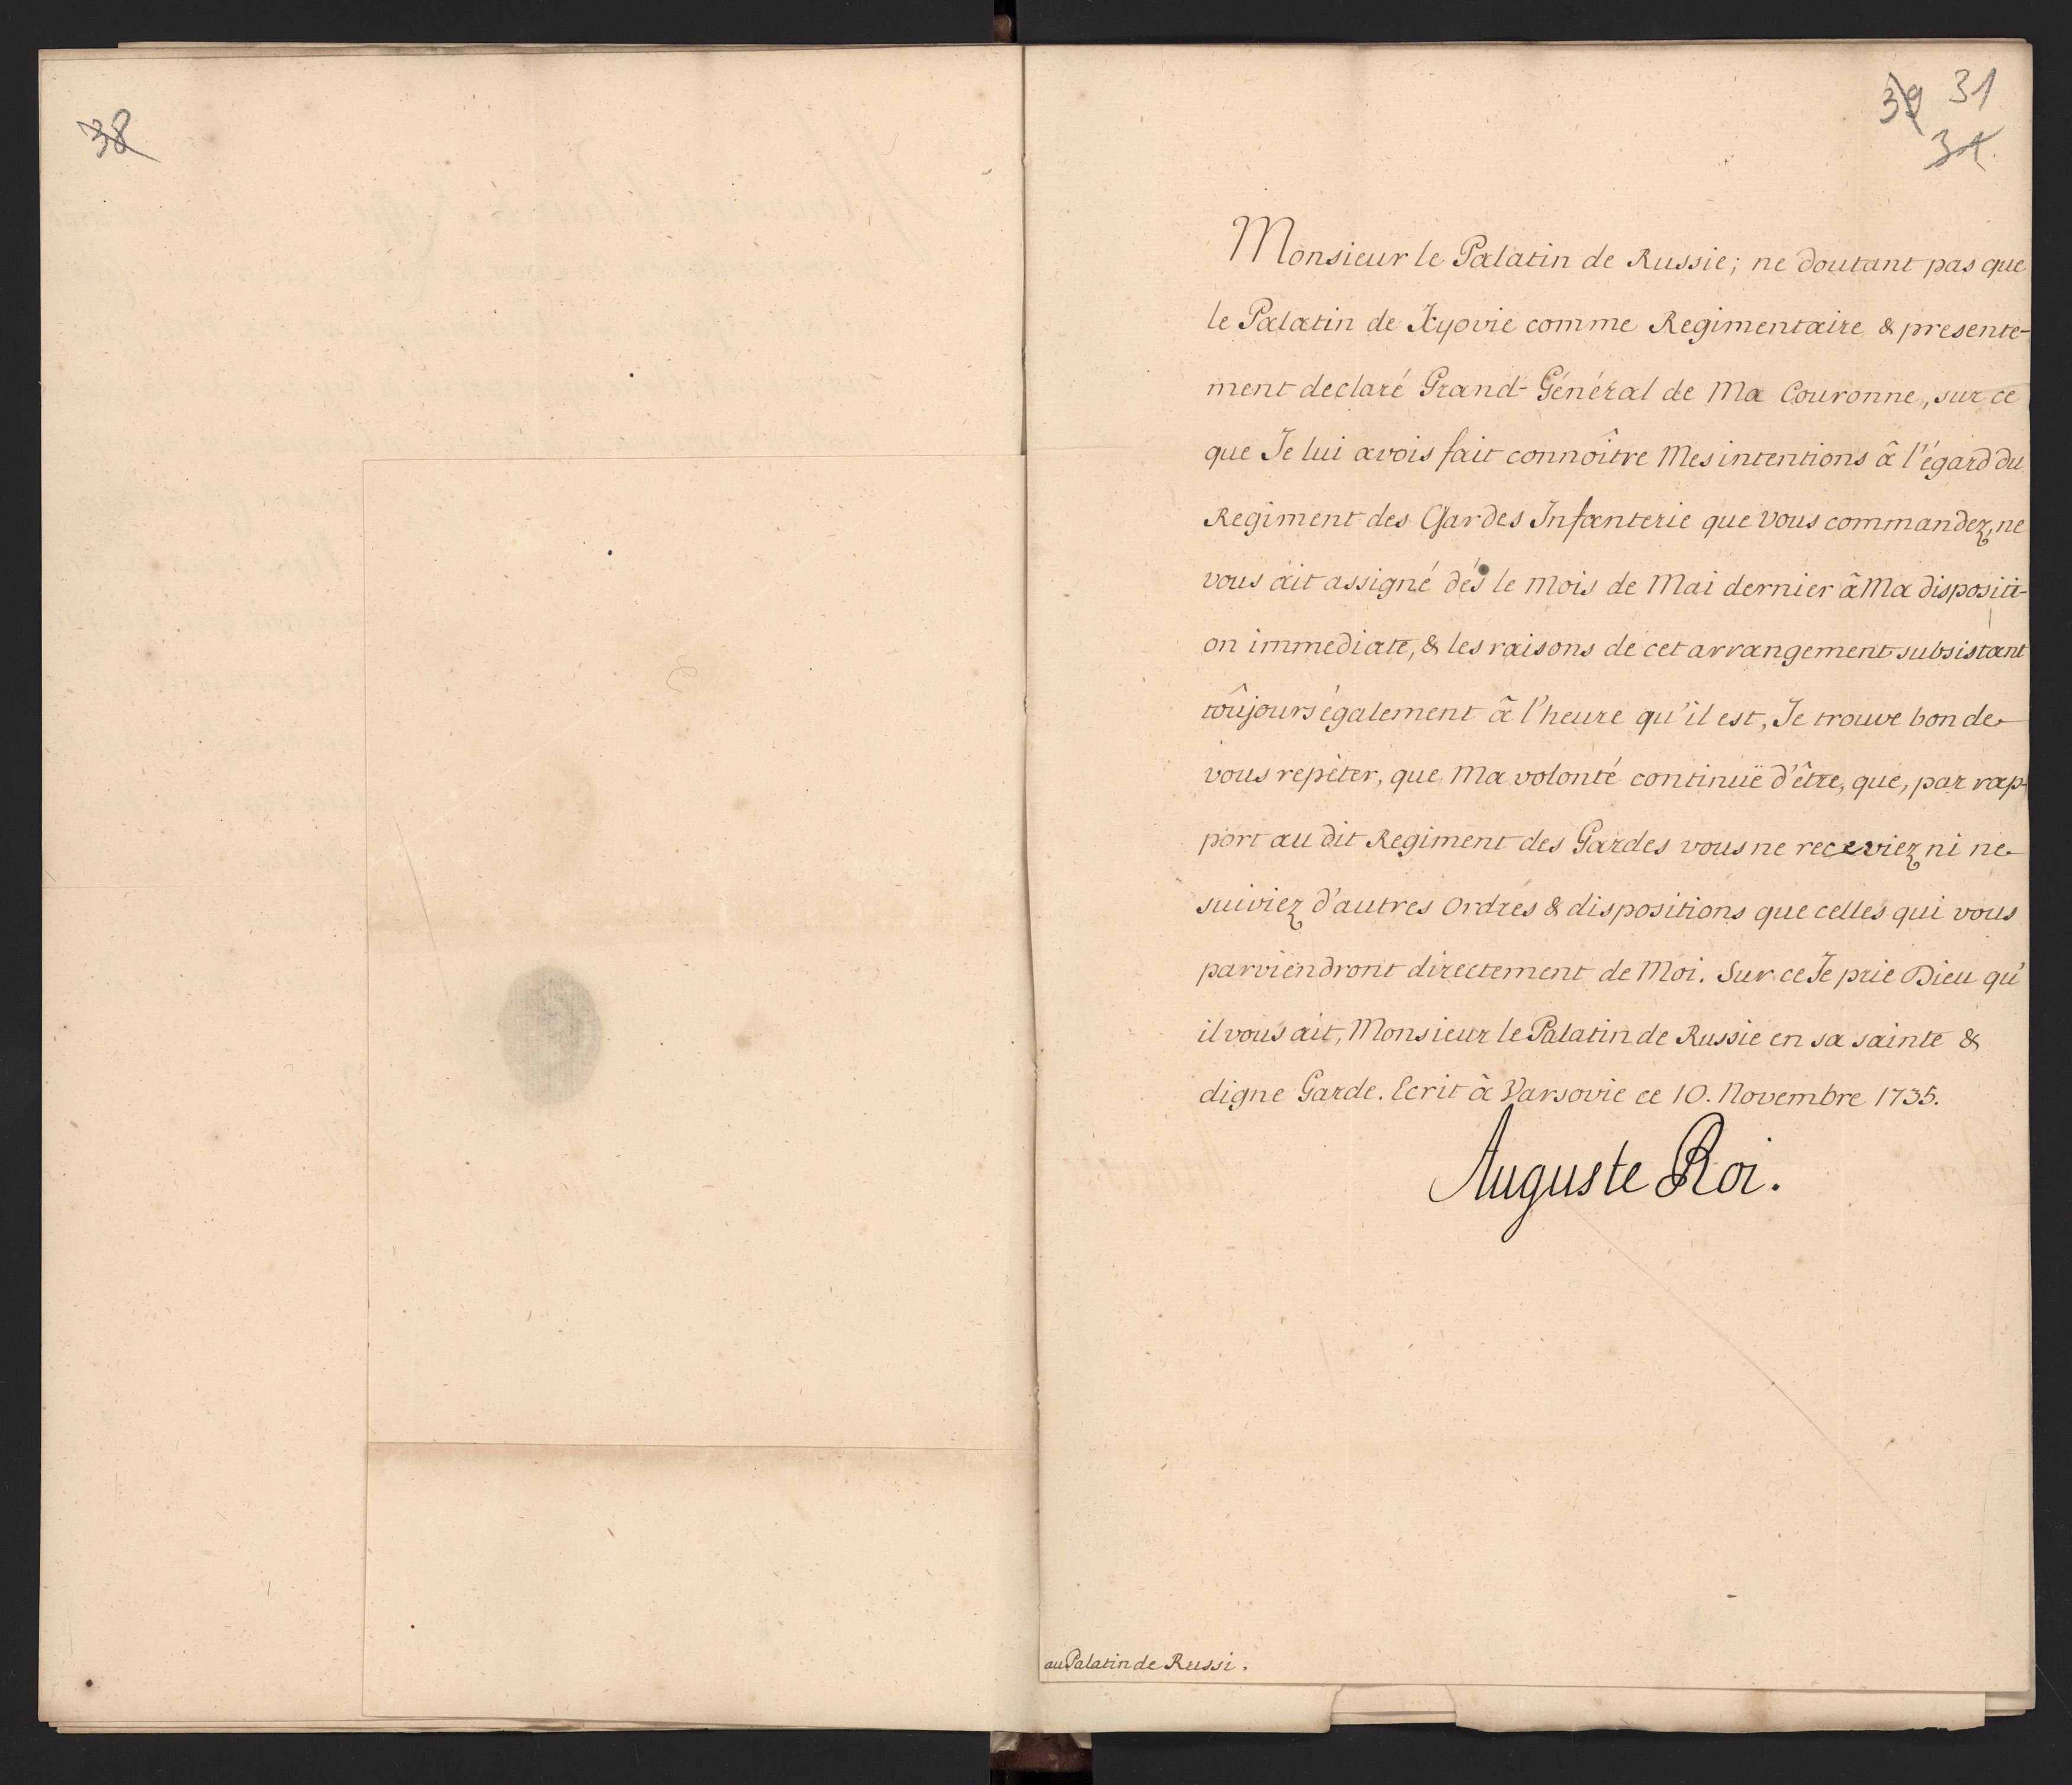 38
39 31
31.
Monsieur le Palatin de Russie; ne doutant pas que
le Palatin de Kyovie comme Regimentaire & presente-
ment declaré Grand-Général de Ma Couronne, sur ce
que Je lui avois fait connoître Mes intentions â l'égard du
Regiment des Gardes Infanterie que Vous commandez, ne
vous ait assigné dés le Mois de Mai dernier â Ma dispositi-
on immediate, & les raisons de cet arrangement subsistant
toûjours également â l'heure qu'il est, Je trouve bon de
vous repéter, que Ma volonté continuë d'être, que, par rap-
port au dit Regiment des Gardes vous ne receviez ni ne
suiviez d'autres Ordres & dispositions que celles qui vous
parviendront directement de Moi. Sur ce Je prie Dieu qu'
il vous ait, Monsieur le Palatin de Russie en sa sainte &
digne Garde. Ecrit â Varsovie ce 10. Novembre 1735.
Auguste Roi.
au Palatin de Russi.